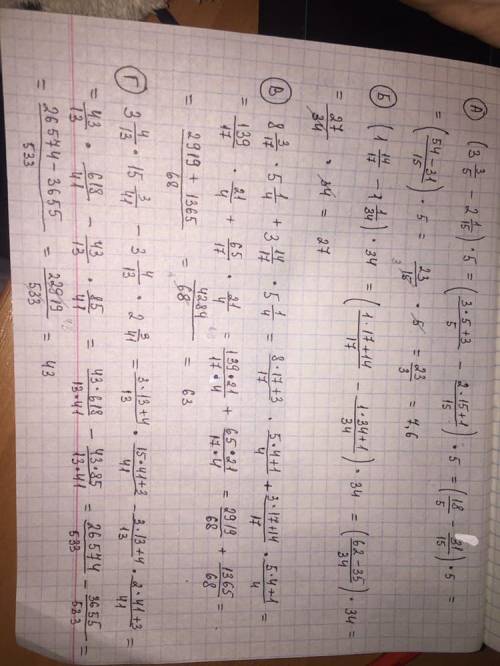 А (3 3/5 − 2 1/15) · 5 = (3·5+3/5 − 2·15+1/15) · 5 = (18/5 − 31/15) · 5 =
= (54−31/15) · 5 = 23/15 · 5 = 23/3 = 7,6
Б (1 14/17 − 1 1/34) · 34 = (1·17+14/17 − 1·34+1/34) · 34 = (62−35/34) · 34 =
= 27/34 · 34 = 27
В 8 3/17 · 5 1/4 + 3 14/17 · 5 1/4 = 8·17+3/17 · 5·4+1/4 + 3·17+14/17 · 5·4+1/4 =
= 139/17 · 21/4 + 65/17 · 21/4 = 139·21/17·4 + 65·21/17·4 = 2919/68 + 1365/68 =
= 2919+1365/68 = 4284/68 = 63
Г 3 4/13 · 15 3/41 − 3 4/13 · 2 3/41 = 3·13+4/13 · 15·41+3/41 − 3·13+4/13 · 2·41+3/41 =
= 43/13 · 618/41 − 43/13 · 85/41 = 43·618/13·41 − 43·85/13·41 = 26574/533 − 3655/533 =
= 26574−3655/533 = 22919/533 = 43